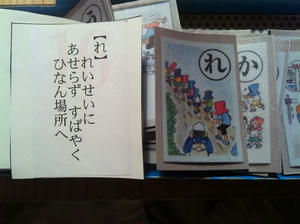 【れ】
れいせいに
あせらず すばやく
ひなん場所へ
れ
か